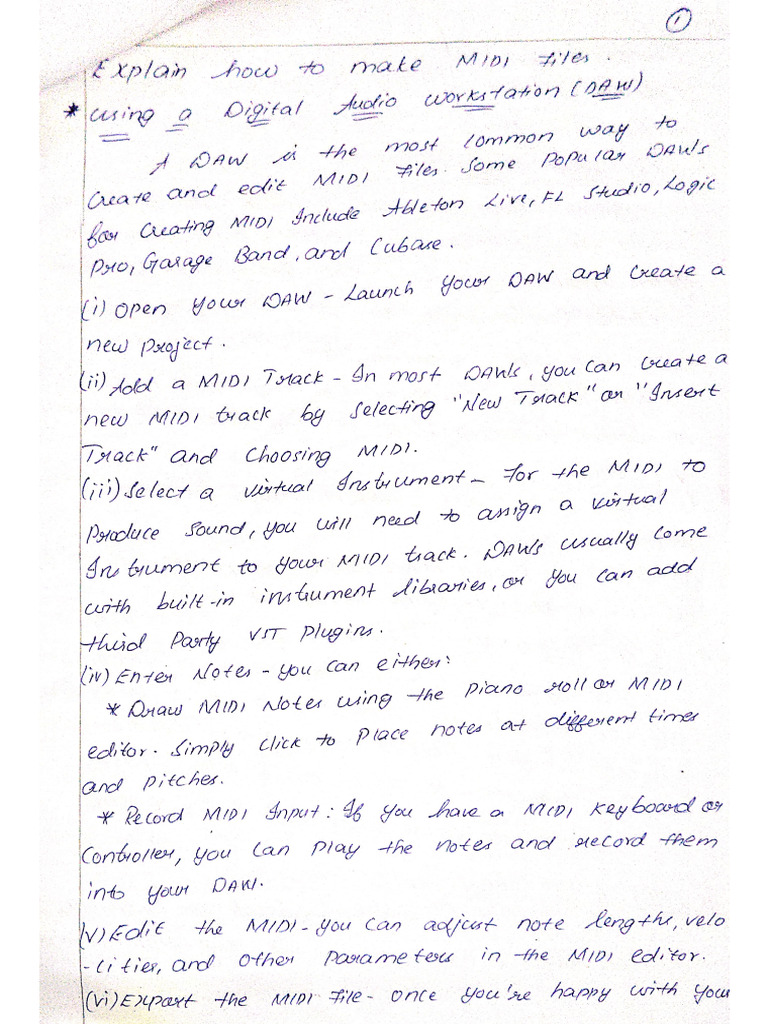 1
Explain how to make MIDI files.
* using a Digital Audio workstation (DAW)
A DAW is the most common way to
create and edit MIDI files. Some popular DAWs
for creating MIDI Include Ableton Live, FL Studio, Logic
Pro, Garage Band, and Cubase.
(i) Open your DAW - Launch your DAW and create a
new project.
(ii) Add a MIDI Track - In most DAWs, you can create a
new MIDI track by selecting "New Track" or "Insert
Track" and choosing MIDI.
(iii) Select a virtual Instrument - For the MIDI to
Produce sound, you will need to assign a virtual
Instrument to your MIDI track. DAWs usually come
with built-in instrument libraries, or you can add
third Party VST Plugins.
(iv) Enter Notes - you can either:
* Draw MIDI Notes using the piano roll or MIDI
editor. Simply click to place notes at different times
and pitches.
* Record MIDI Input: If you have a MIDI keyboard or
controller, you can play the notes and record them
into your DAW.
(v) Edit the MIDI - you can adjust note lengths, velo
-cities, and other parameters in the MIDI editor.
(vi) Export the MIDI File - once you're happy with your